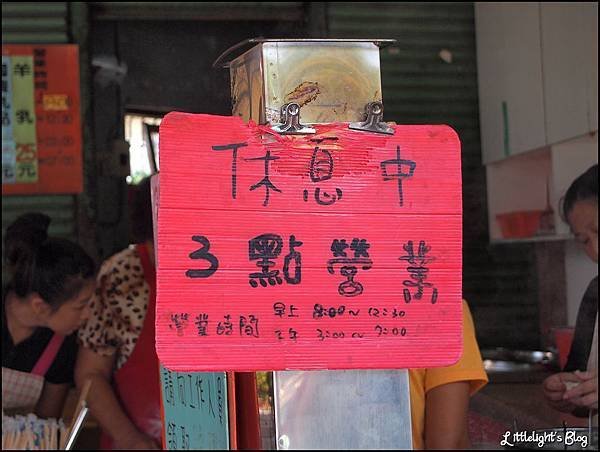 休息中
3點營業
營業時間
早上 8:00~12:30
下午 3:00~7:00
羊乳
25元
Littlelight's Blog